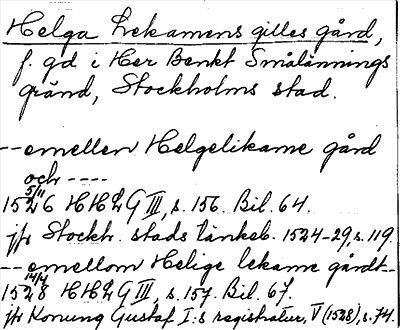 Helga Lekamens gilles gård,
f. gd. i Her Benkt Smålännings
gränd, Stockholms stad.
--emellen Helgelikame gård
och ----
5/11
1526 HHL G III, s. 156. Bil. 64.
jfr Stockh. stads tänkeb. 1524-29, s. 119.
--emellom Helige lekame gårdt--
14/4
1528 HHL G III, s. 157. Bil. 67.
jfr Konung Gustaf I:s registratur, V (1528), s. 74.